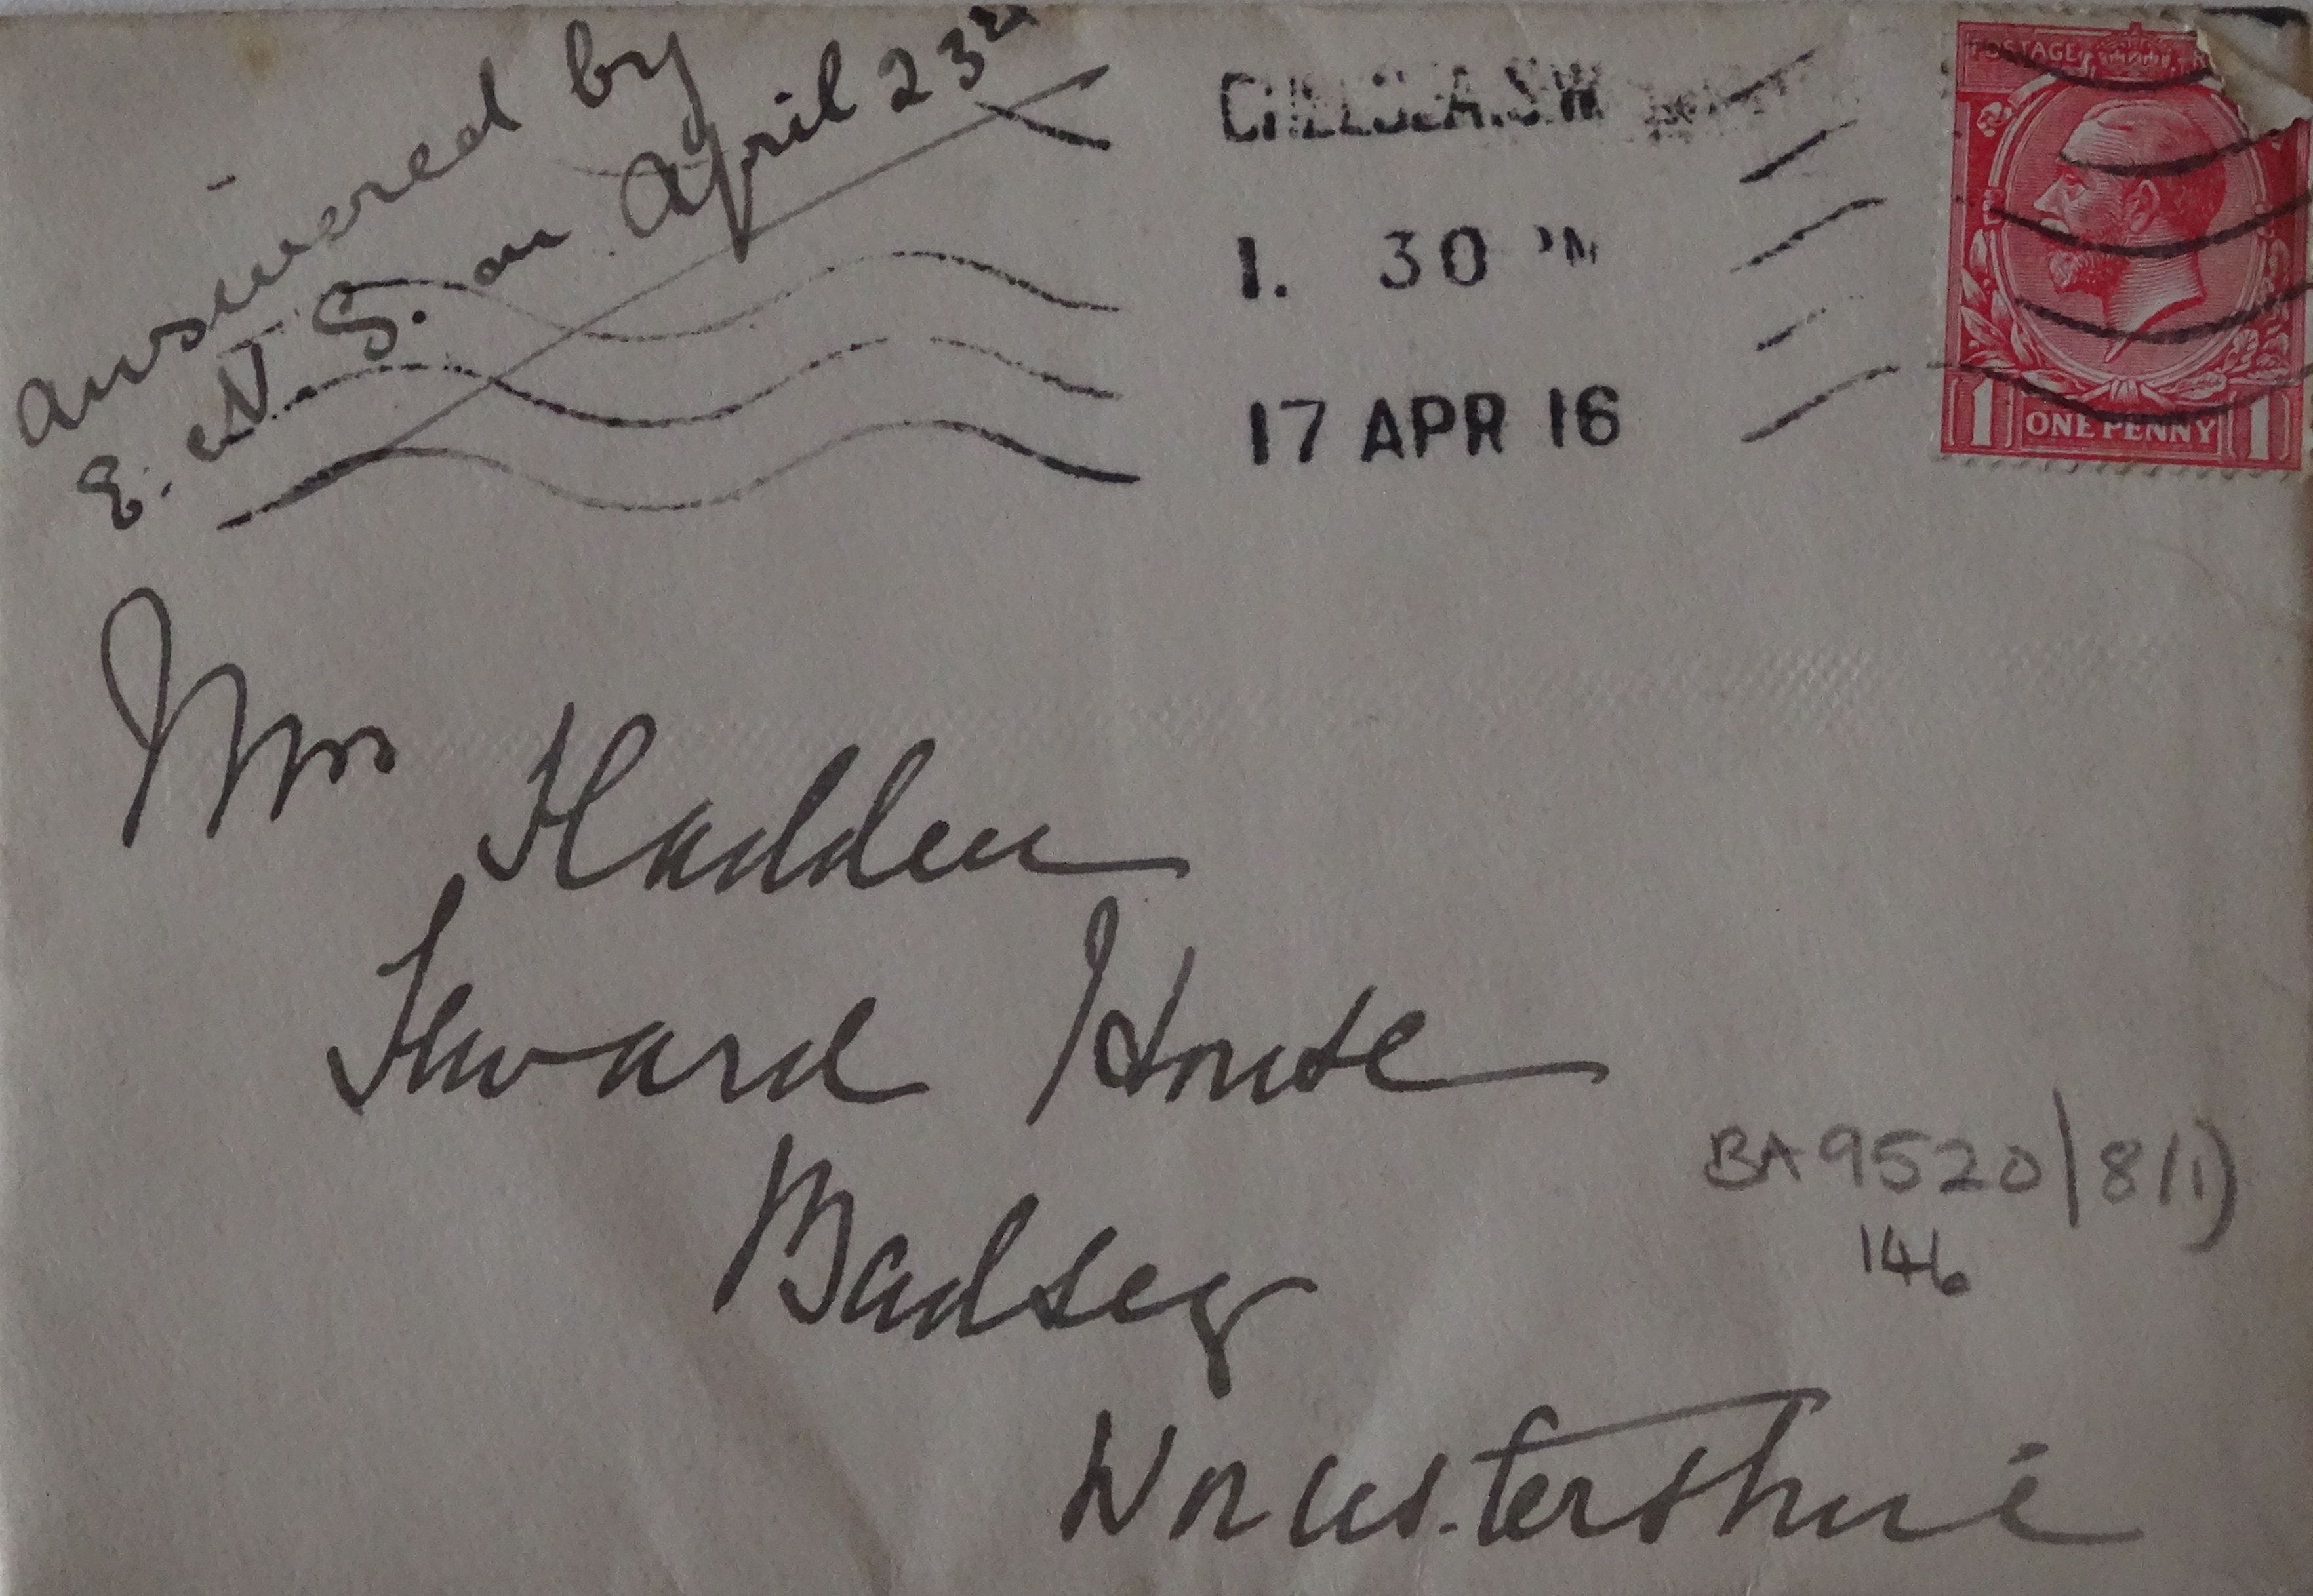 answered by
E. N S. on April 23rd
CHELSEA.S.W
1. 30 PM
17 APR 16
POSTAGE
1 ONE PENNY 1
Mrs Sladden
Seward House
Badsey
Worcestershire
BA 9520/8/1)
146